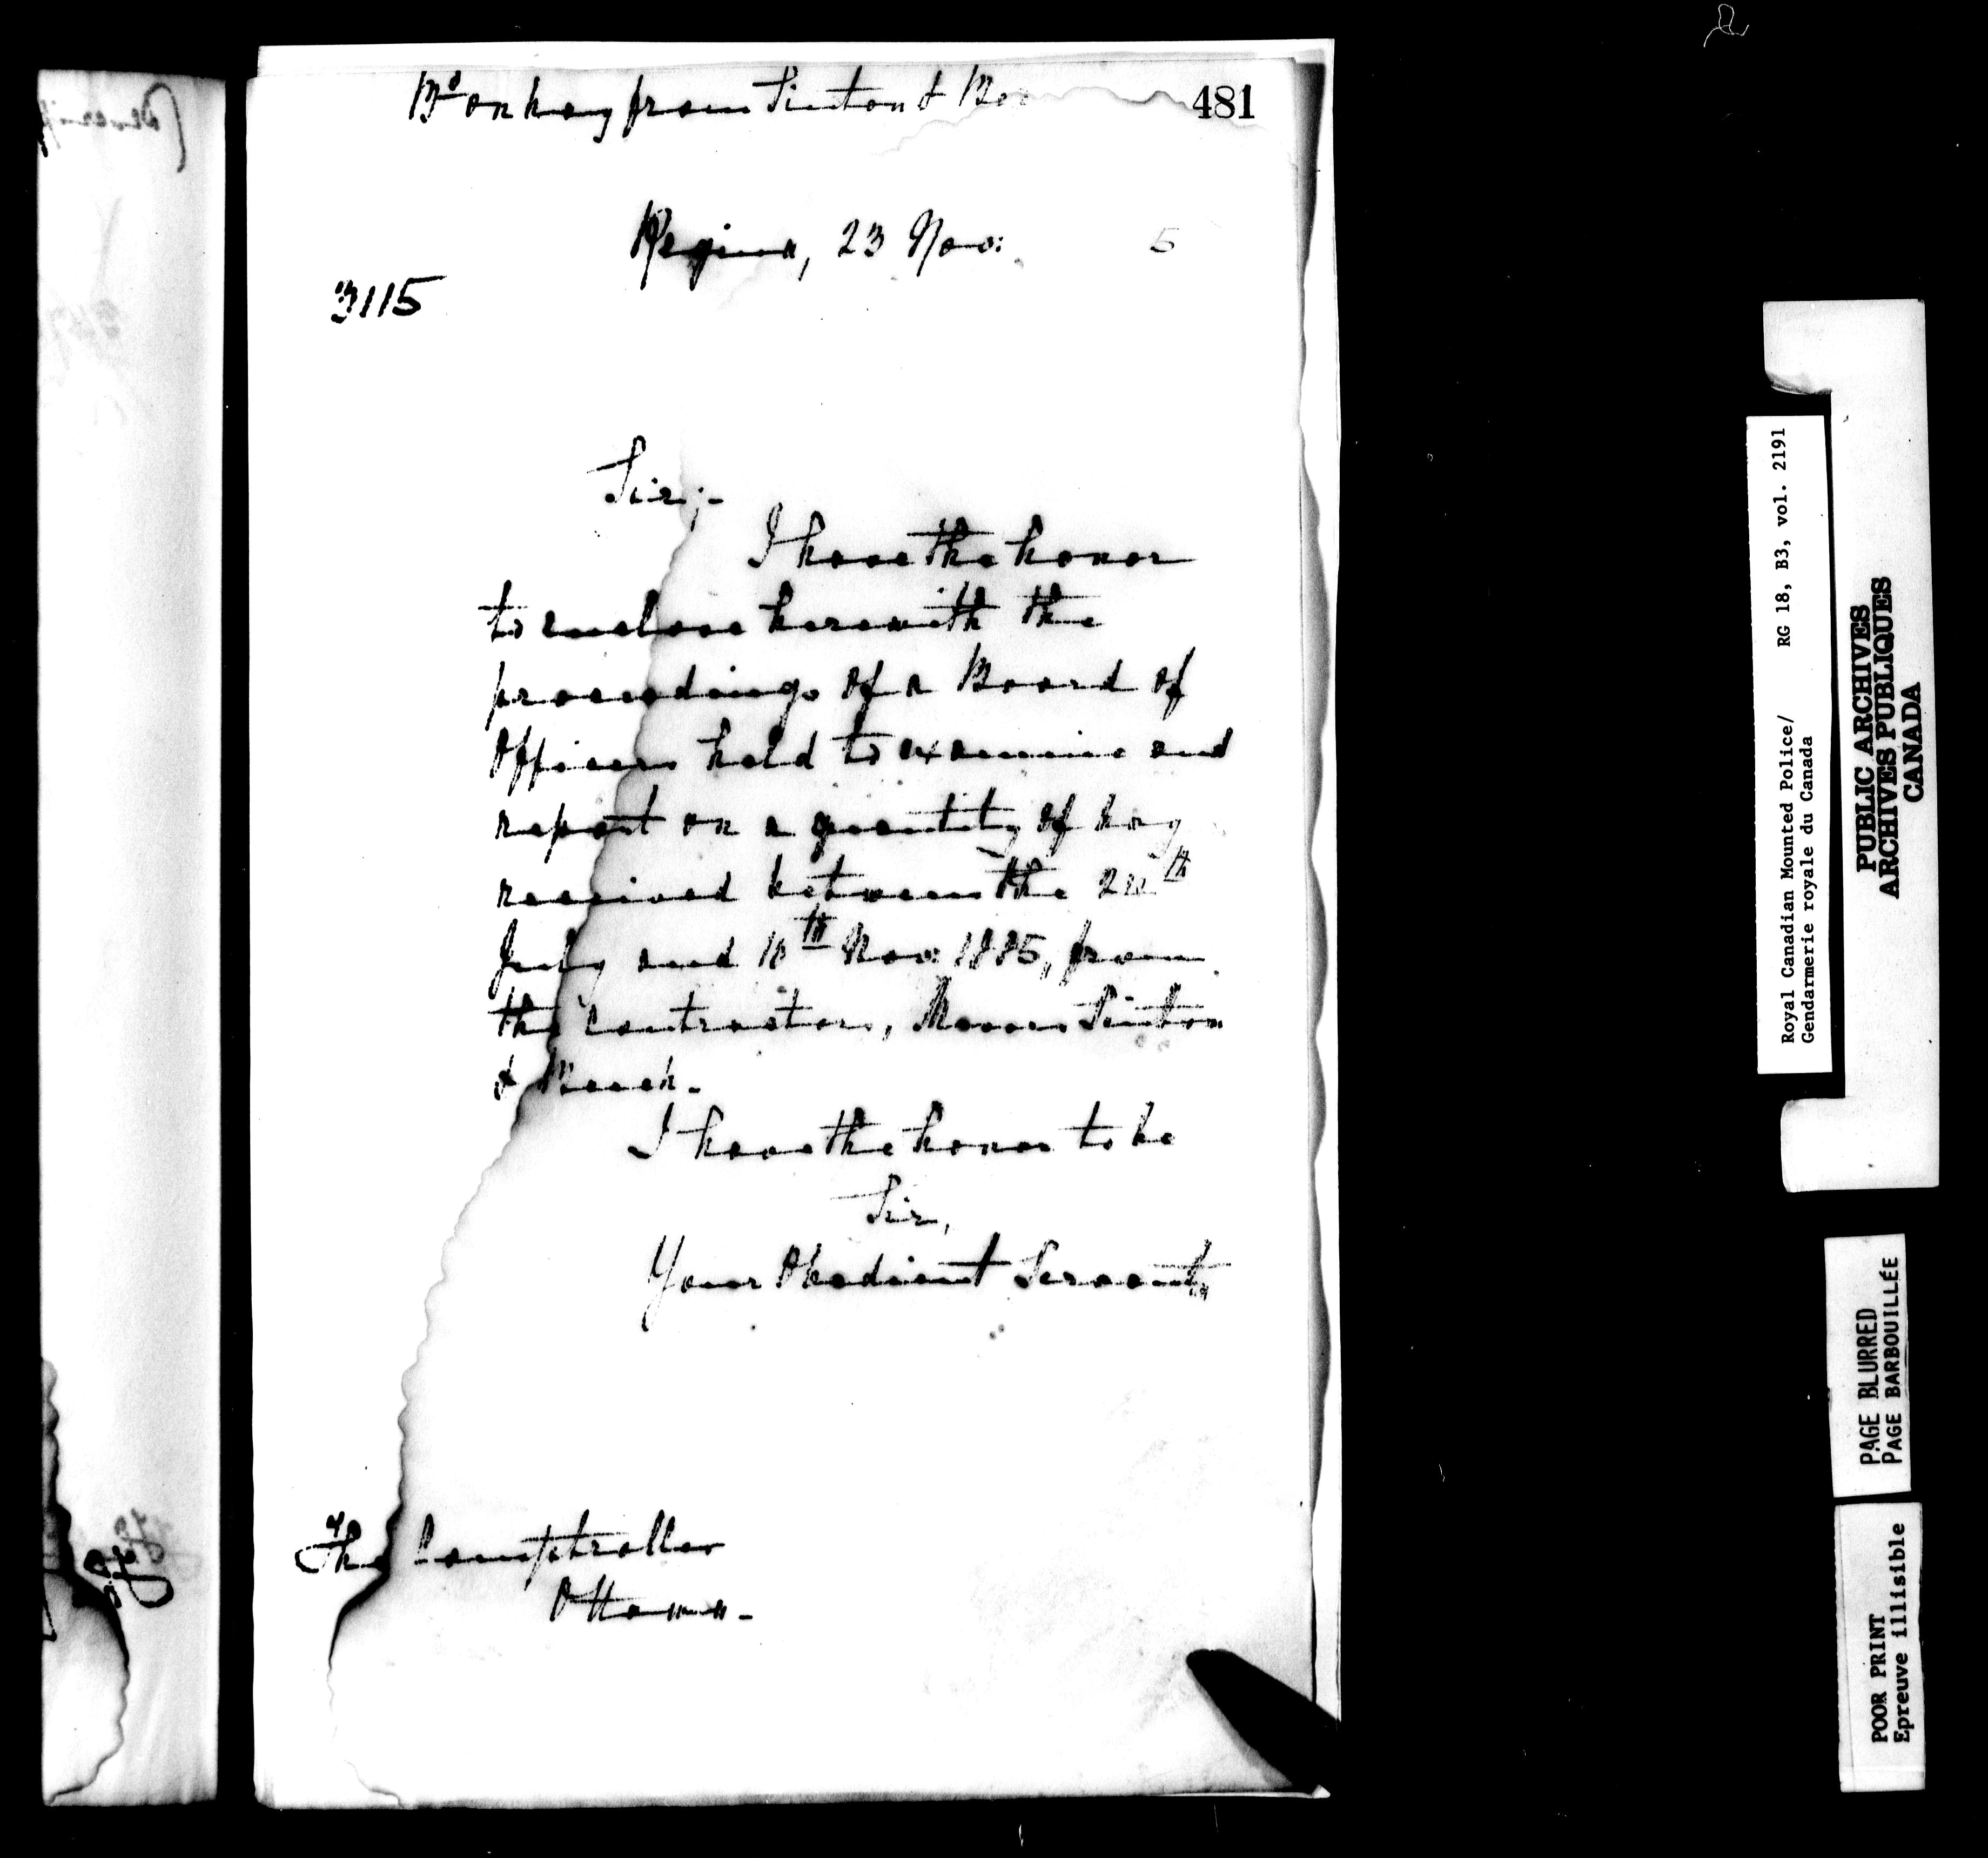 Bd on hay from Sinton &
481
Regina, 23 Nov: 5
3115
Sir;-
I have the honor
to enclose herewith the
proceedings of a Board of
Officers held to examine and
report on a quantity of hay
received between the
July and 18th Nov: 1885, from
the contractors, Messrs Sinton
&
I have the honor to be
Sir,
Your Obedient Servant,
The Comptroller
Ottawa-
Royal Canadian Mounted Police/ RG 18, B3, vol. 2191
Gendarmerie royale du Canada
PUBLIC ARCHIVES
ARCHIVES PUBLIQUES
CANADA
PAGE BLURRED
PAGE BARBOUILLÉE
POOR PRINT
Epreuve illisible